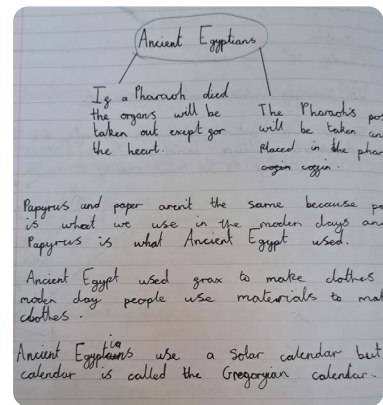 Ancient Egyptians
Is a Pharaoh died
the organs will be
taken out exept for
the heart.
The Pharaoh's pos
will be taken an
placed in the phar
coffin.
Papyrus and paper aren't the same because p
is what we use in the moden days an
Papyrus is what Ancient Egypt used.
Ancient Egypt used grax to make clothes
moden day people use materials to mak
clothes.
Ancient Egyptians use a Solar calendar but
calendar is called the Gregorgian calendar.